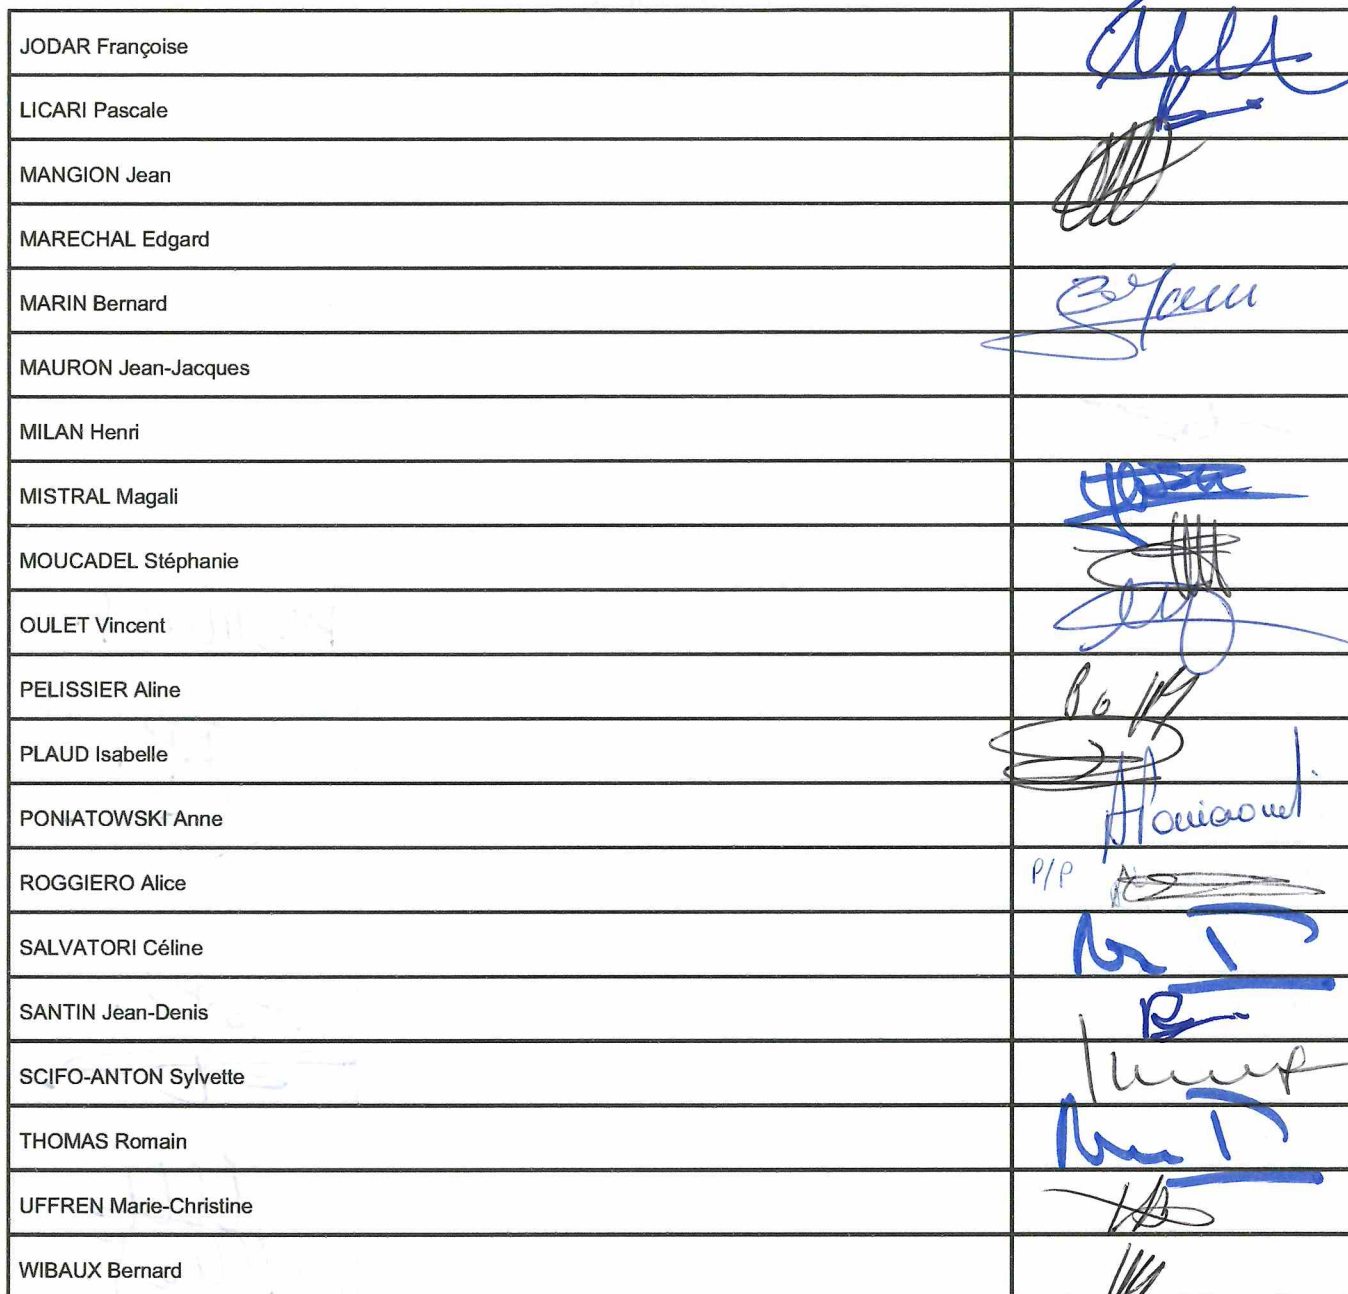 JODAR Françoise
LICARI Pascale
MANGION Jean
MARECHAL Edgard
MARIN Bernard
MAURON Jean-Jacques
MILAN Henri
MISTRAL Magali
MOUCADEL Stéphanie
OULET Vincent
PELISSIER Aline
PLAUD Isabelle
PONIATOWSKI Anne
ROGGIERO Alice P/P
SALVATORI Céline
SANTIN Jean-Denis
SCIFO-ANTON Sylvette
THOMAS Romain
UFFREN Marie-Christine
WIBAUX Bernard